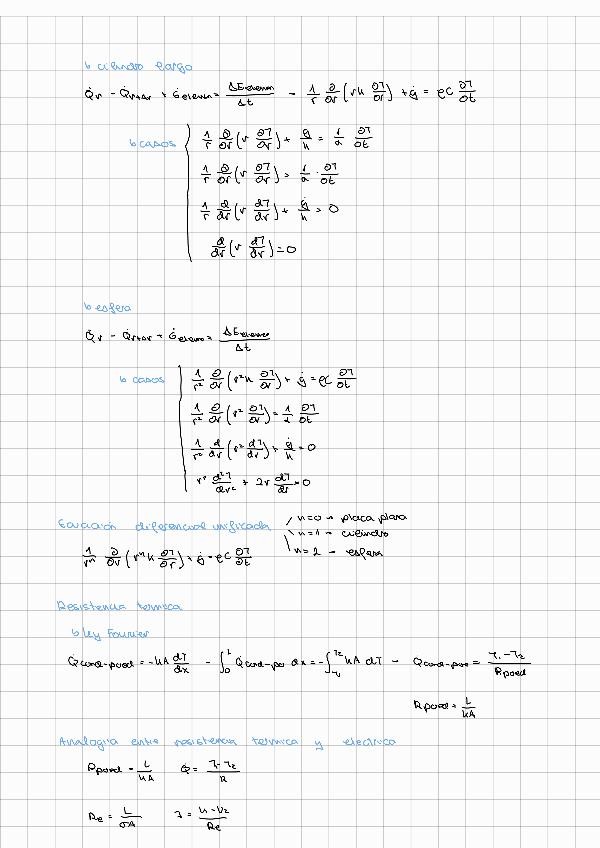 ↳ cilindro largo
Q̇r - Q̇r+Δr + Ġelemen = ΔEelemen/Δt → 1/r ∂/∂r (rk ∂T/∂r) + ġ = ρC ∂T/∂t
↳ casos
1/r ∂/∂r (r ∂T/∂r) + ġ/k = 1/α ∂T/∂t
1/r ∂/∂r (r ∂T/∂r) = 1/α · ∂T/∂t
1/r d/dr (r dT/dr) + ġ/k = 0
d/dr (r dT/dr) = 0
↳ esfera
Q̇r - Q̇r+Δr + Ġelemen = ΔEelemen/Δt
↳ casos
1/r² ∂/∂r (r²k ∂T/∂r) + ġ = ρC ∂T/∂t
1/r² ∂/∂r (r² ∂T/∂r) = 1/α ∂T/∂t
1/r² d/dr (r² dT/dr) + ġ/k = 0
r² d²T/dr² + 2r dT/dr = 0
Ecuación diferencial unificada
n=0 → placa plana
n=1 → cilindro
n=2 → esfera
1/rⁿ ∂/∂r (rⁿ k ∂T/∂r) + ġ = ρC ∂T/∂t
Resistencia termica
↳ ley Fourier
Q̇cond-pared = -kA dT/dx → ∫₀ᴸ Q̇cond-pa dx = -∫T₁^T₂ kA dT → Q̇cond-par = T₁-T₂/Rpared
Rpared = L/kA
Analogia entre resistencia termica y electrica
Rpared = L/kA Q̇ = T₁-T₂/R
Re = L/σA I = V₁-V₂/Re